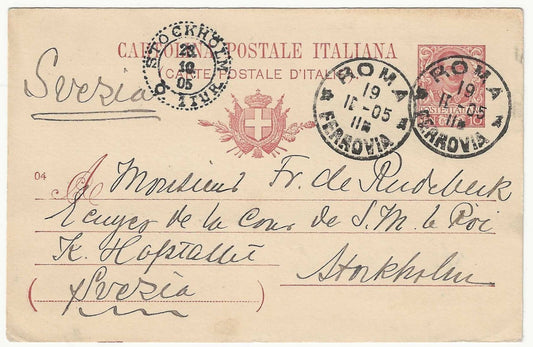 CARTOLINA POSTALE ITALIANA
CARTE POSTALE D'ITALIE
STOCKHOLM
05
ROMA
19
11-05
FERROVIA
ROMA
19
11-05
FERROVIA
Svezia
04
A Monsieur Fr. de Rudebeck
Ecuyer de la Cour de S. M. le Roi
K. Hofstallet
Stockholm
(Svezia)